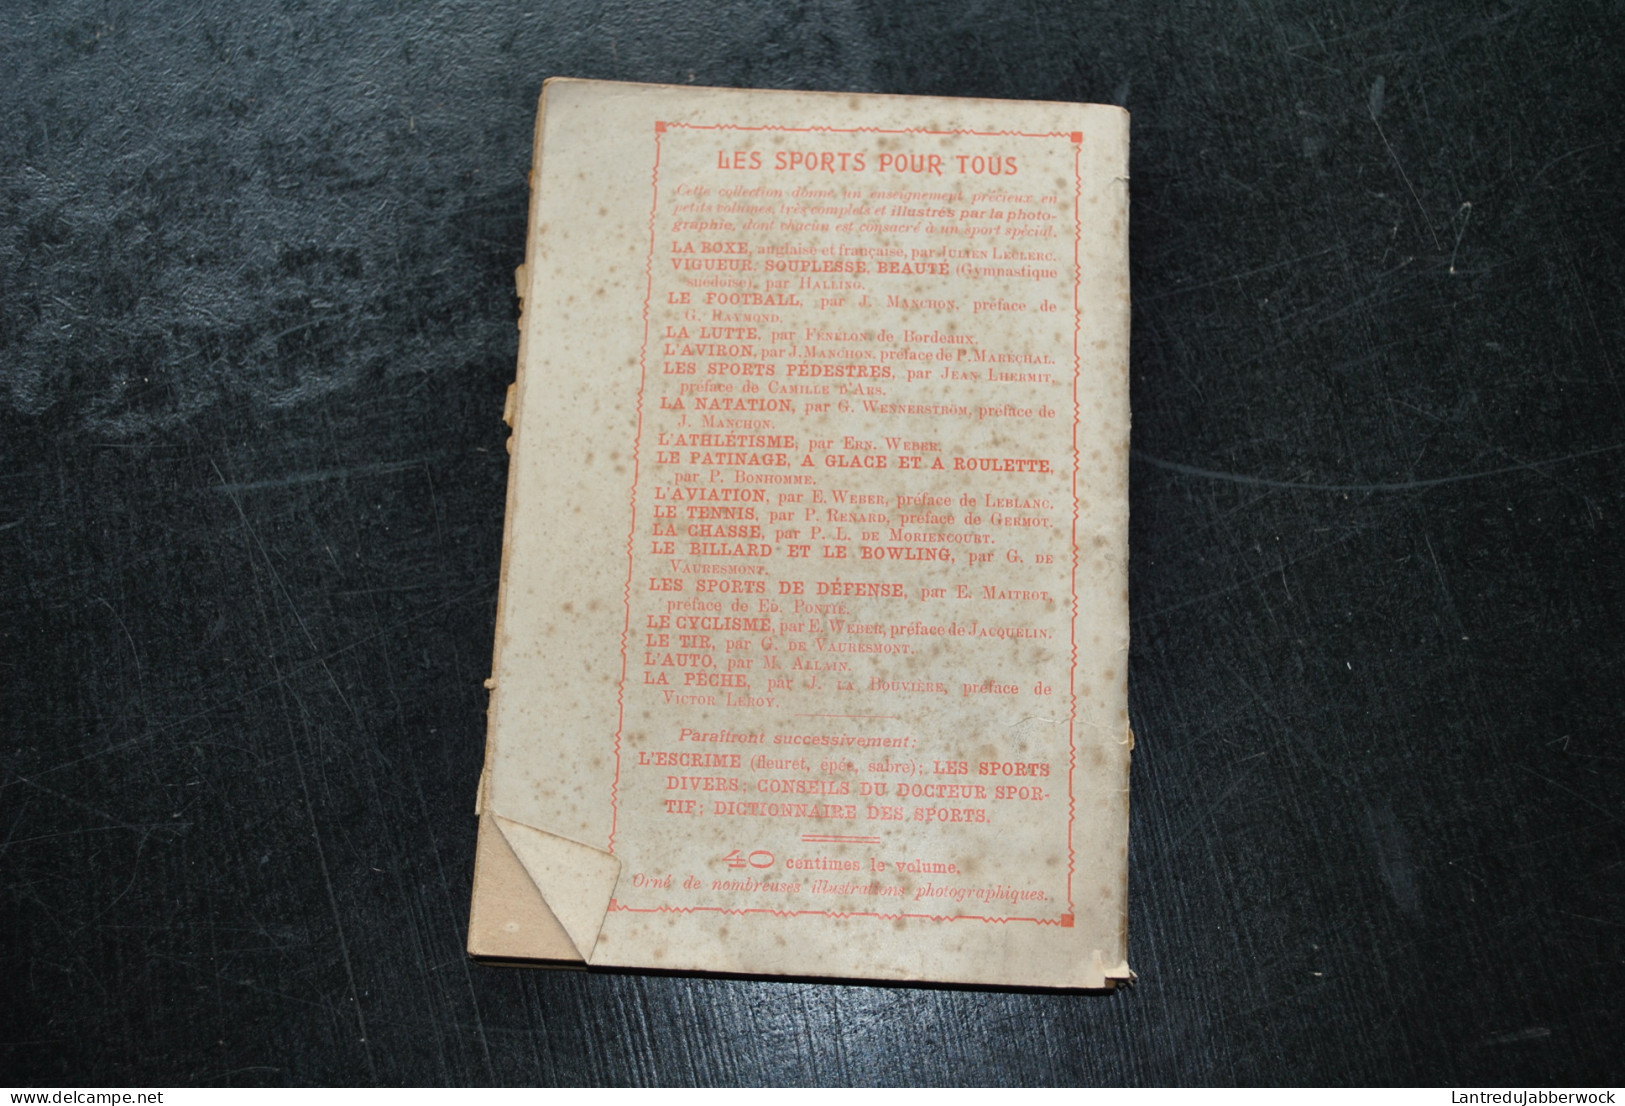 LES SPORTS POUR TOUS
Cette collection donne un enseignement précieux en
petits volumes, très complets et illustrés par la photo-
graphie, dont chacun est consacré à un sport spécial.
LA BOXE, anglaise et française, par JULIEN LECLERC.
VIGUEUR, SOUPLESSE, BEAUTÉ (Gymnastique
suédoise), par HALLING.
LE FOOTBALL, par J. MANCHON, préface de
G. RAYMOND.
LA LUTTE, par FÉNELON de Bordeaux.
L'AVIRON, par J. MANCHON, préface de P. MARÉCHAL.
LES SPORTS PÉDESTRES, par JEAN LHERMIT,
préface de CAMILLE D'ARS.
LA NATATION, par G. WENNERSTRÖM, préface de
J. MANCHON.
L'ATHLÉTISME, par ERN. WEBER.
LE PATINAGE, A GLACE ET A ROULETTE,
par P. BONHOMME.
L'AVIATION, par E. WEBER, préface de LEBLANC.
LE TENNIS, par P. RENARD, préface de GERMOT.
LA CHASSE, par P. L. DE MORIENCOURT.
LE BILLARD ET LE BOWLING, par G. DE
VAURESMONT.
LES SPORTS DE DÉFENSE, par E. MAITROT,
préface de ED. PONTIÉ.
LE CYCLISME, par E. WEBER, préface de JACQUELIN.
LE TIR, par G. DE VAURESMONT.
L'AUTO, par M. ALLAIN.
LA PÊCHE, par J. LA BOUVIÈRE, préface de
VICTOR LEROY.
Paraîtront successivement:
L'ESCRIME (fleuret, épée, sabre); LES SPORTS
DIVERS; CONSEILS DU DOCTEUR SPOR-
TIF; DICTIONNAIRE DES SPORTS.
40 centimes le volume.
Orné de nombreuses illustrations photographiques.
delcampe.net
LantreduJabberwock